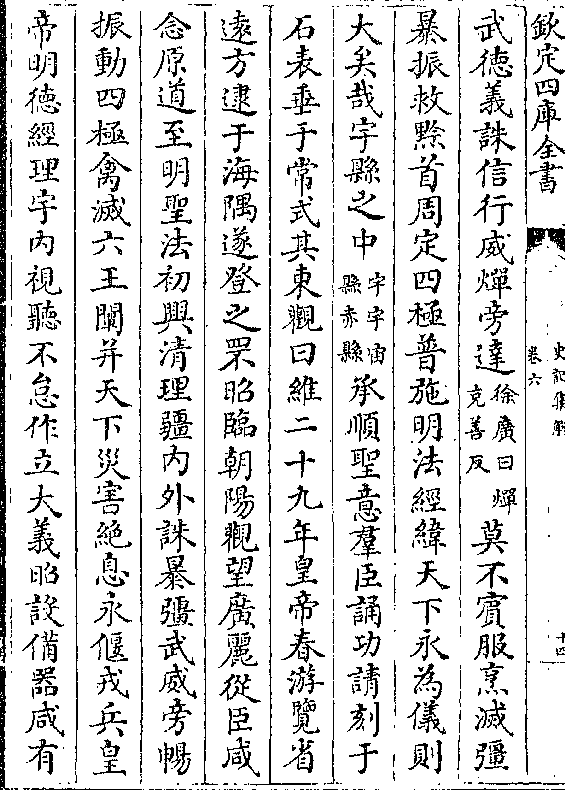 欽定四庫全書
史記集解
卷六
十四
武德義誅信行威燀旁達徐廣曰燀充善反莫不賓服烹滅彊
暴振救黔首周定四極普施明法經緯天下永為儀則
大矣哉宇縣之中宇宇宙縣赤縣承順聖意羣臣誦功請刻于
石表垂于常式其東觀曰維二十九年皇帝春游覽省
逺方逮于海隅遂登之罘昭臨朝陽觀望廣麗從臣咸
念原道至明聖法初興清理疆内外誅暴彊武威旁暢
振動四極禽滅六王闡并天下災害絶息永偃戎兵皇
帝明德經理宇内視聽不怠作立大義昭設備器咸有